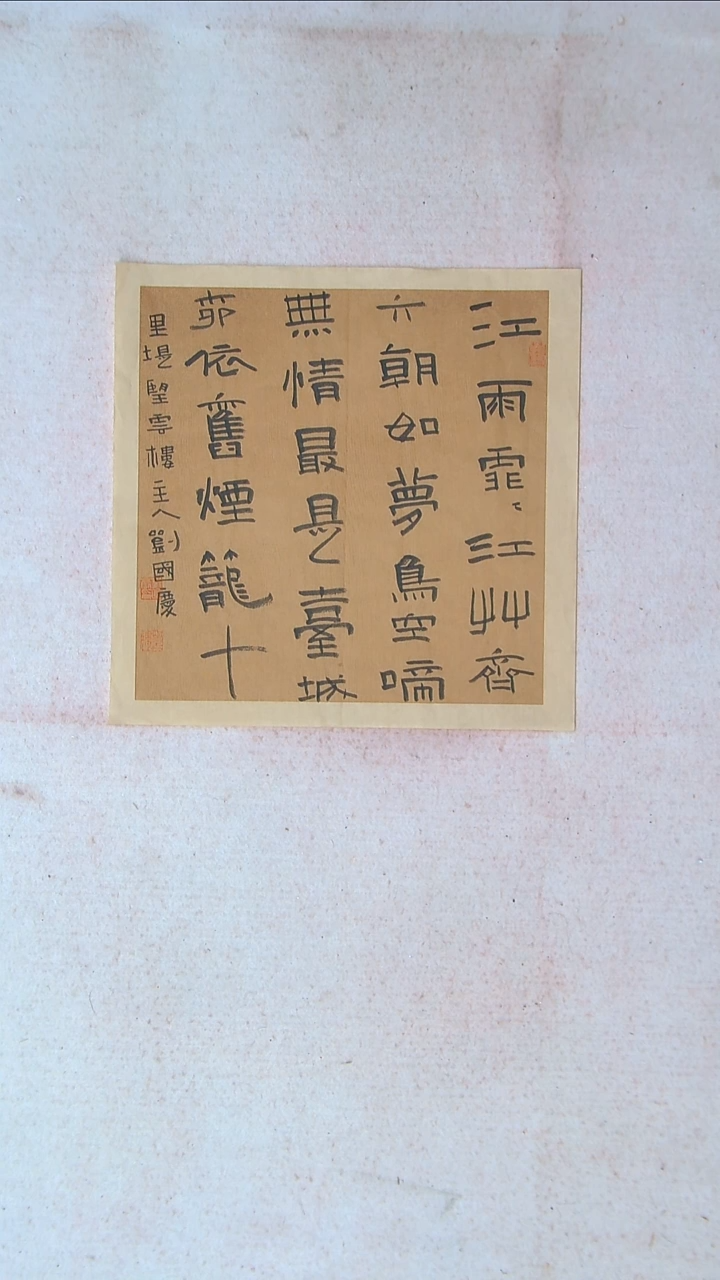 江雨霏〻江艸齊
六朝如夢鳥空啼
無情最是臺城
柳依舊煙籠十
里堤 望雲樓主人劉國慶